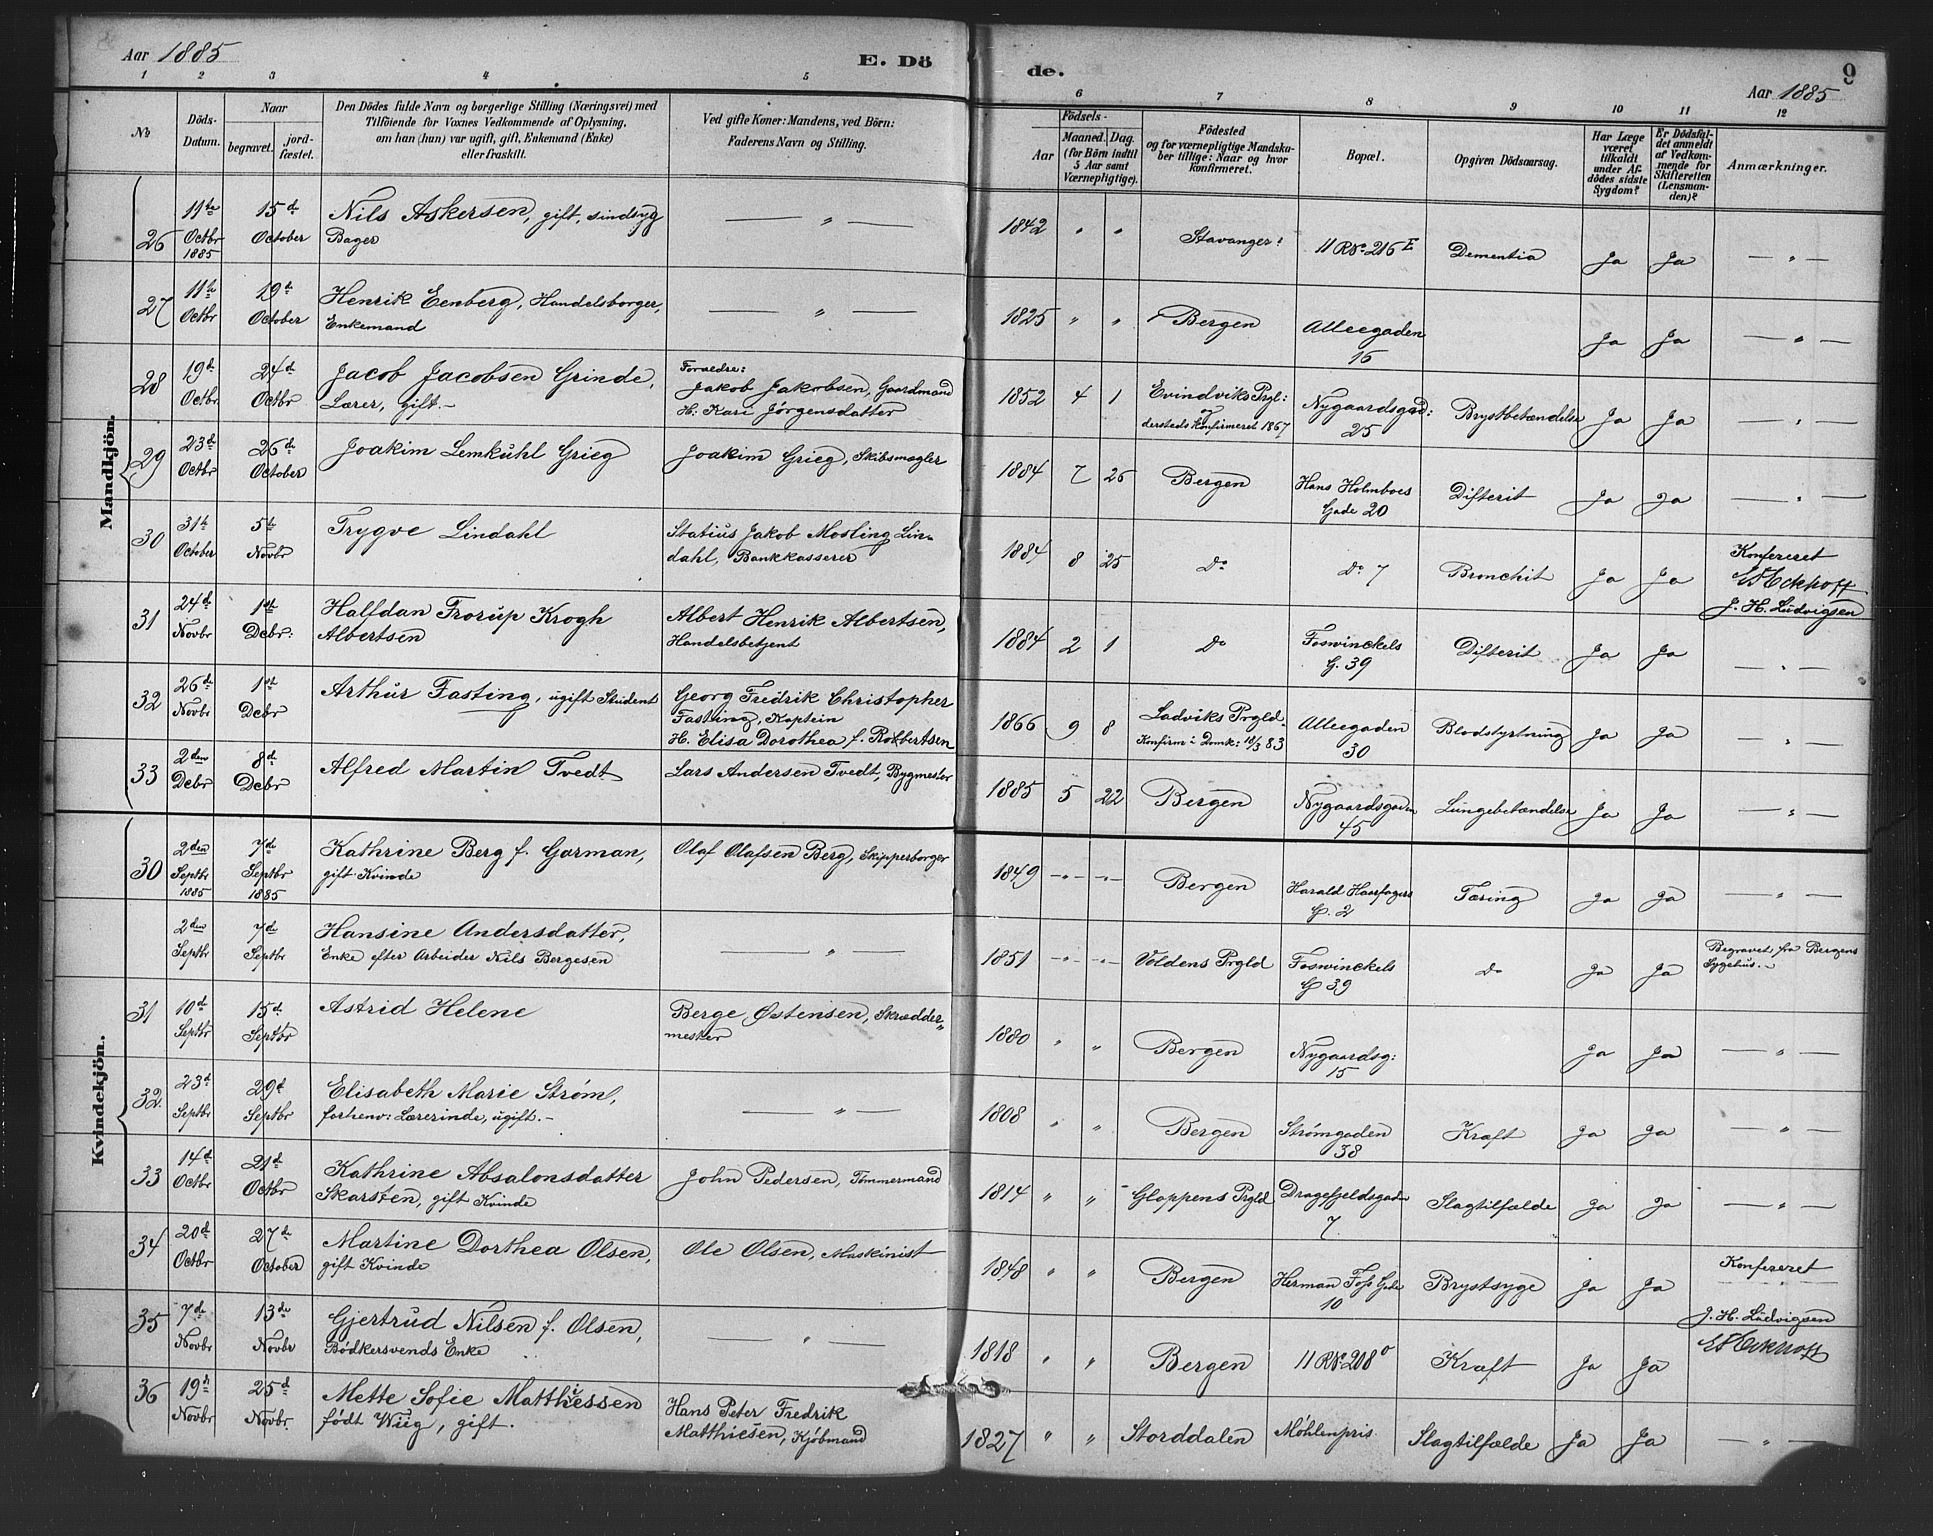 Aar 1885
E. Dö
de.
9
Aar 1885
1 2 3 4 5
6 7 8 9 10 11 12
No
Döds-Datum.
Naar
begravet. jordfæstet.
Den Dödes fulde Navn og borgerlige Stilling (Næringsvei) med
Tilföiende for Voxnes Vedkommende af Oplysning,
om han (hun) var ugift, gift, Enkemand (Enke)
eller fraskilt.
Ved gifte Koner: Mandens, ved Börn:
Faderens Navn og Stilling.
Födsels-
Aar
Maaned. Dag.
(for Börn indtil
5 Aar samt
Værnepligtige).
Födested
og for værnepligtige Mandskaber tillige: Naar og hvor
konfirmeret.
Bopæl.
Opgiven Dödsaarsag.
Har Læge
været
tilkaldt
under Afdödes sidste
Sygdom?
Er Dödsfaldet anmeldt
af Vedkommende for
Skifteretten
(Lensmanden)?
Anmærkninger.
Mandkjön.
26 11te Octbr 1885 15d October Nils Askersen, gift, sindsyg Bager — " — 1842 " " Stavanger! 11 R No 216 E Dementia Ja Ja — " —
27 11te Octbr 19d October Henrik Eenberg, Handelsborger, Enkemand — " — 1825 " " Bergen Alleegaden 16 Ja Ja — " —
28 19d Octbr 24d Octbr Jacob Jacobsen Grinde, Lærer, gift.- Forældre: Jakob Jakobsen, Gaardmand H. Kari Jørgensdatter 1852 4 1 Evindviks Prgl: og dersteds Konfirmeret 1867 Nygaardsgad: 25 Brystbetændelse Ja Ja — " —
29 23d Octbr 26d October Joakim Lemkuhl Grieg Joakim Grieg, Skibsmægler 1884 7 26 Bergen Hans Holmboes Gade 20 Difterit Ja Ja — " —
30 31te October 5te Novbr Trygve Lindahl Statius Jakob Mosling Lindahl, Bankkasserer 1884 8 25 Do Do 7 Bronchit Ja Ja Konfereret J. H. Ludvigsen
31 24d Novbr 1ste Debr: Halfdan Trorup Krogh Albertsen Albert Henrik Albertsen, Handelsbetjent 1884 2 1 Do Foswinckels G. 39 Difterit Ja Ja — " —
32 26d Novbr 1ste Debr Arthur Fasting, ugift Student Georg Fredrik Christopher Fasting, Kaptein H. Elisa Dorothea f. Robbertsen 1866 9 8 Ladviks Prgld. Konfirm i Domk: 18/3 83 Alleegaden 30 Blodstyrtning Ja Ja — " —
33 2den Debr 8de Debr Alfred Martin Tvedt Lars Andersen Tvedt, Bygmester 1885 5 22 Bergen Nygaardsgaden 45 Lungebetændelse Ja Ja — " —
Kvindekjön.
30 2den Septbr 1885 7de Septbr 1885 Kathrine Berg f. Garman, gift Kvinde Olaf Olafsen Berg, Skipperborger 1849 -"- -"- Bergen Harald Haarfagers G. 2 Tæring Ja Ja — " —
2den Septbr 7de Septbr Hansine Andersdatter, Enke efter Arbeider Nils Bergesen — " — 1851 -"- -"- Voldens Prgld Foswinckels G 39 Do Ja Ja Begravet fra Bergens Sygehus.-
31 10d Septbr 15d Septbr Astrid Helene Berge Østensen, Skræddermester 1880 " " Bergen Nygaardsg: 15 Ja Ja — " —
32. 23d Septbr 29d Septbr Elisabeth Marie Strøm, forhenv: Lærerinde, ugift.- — " — 1808 " " Bergen Strømgaden 38 Kræft Ja Ja — " —
33 14d Octbr 21d Octbr Kathrine Absalonsdatter Skarsten, gift Kvinde John Pedersen, Tømmermand 1814 " " Gloppens Prgld Dragefjeldsgaden 7. Slagtilfælde Ja Ja — " —
34 20d Octbr 27de October Martine Dorthea Olsen, gift Kvinde Ole Olsen, Maskinist 1848 " " Bergen Herman Foss Gade 10 Brystsyge Ja Ja Konfereret J. H. Ludvigsen
35 7de Novbr 13de Novbr Gjertrud Nilsen f. Olsen, Bødkersvends Enke — " — 1818 " " Bergen 11 R No 208 o Kræft Ja Ja
36 19de Novbr 25d Novbr. Mette Sofie Matthiessen født Wiig, gift. Hans Peter Fredrik Matthiesen, Kjøbmand 1827 " " Storddalen Møhlenpris Slagtilfælde Ja Ja — " —